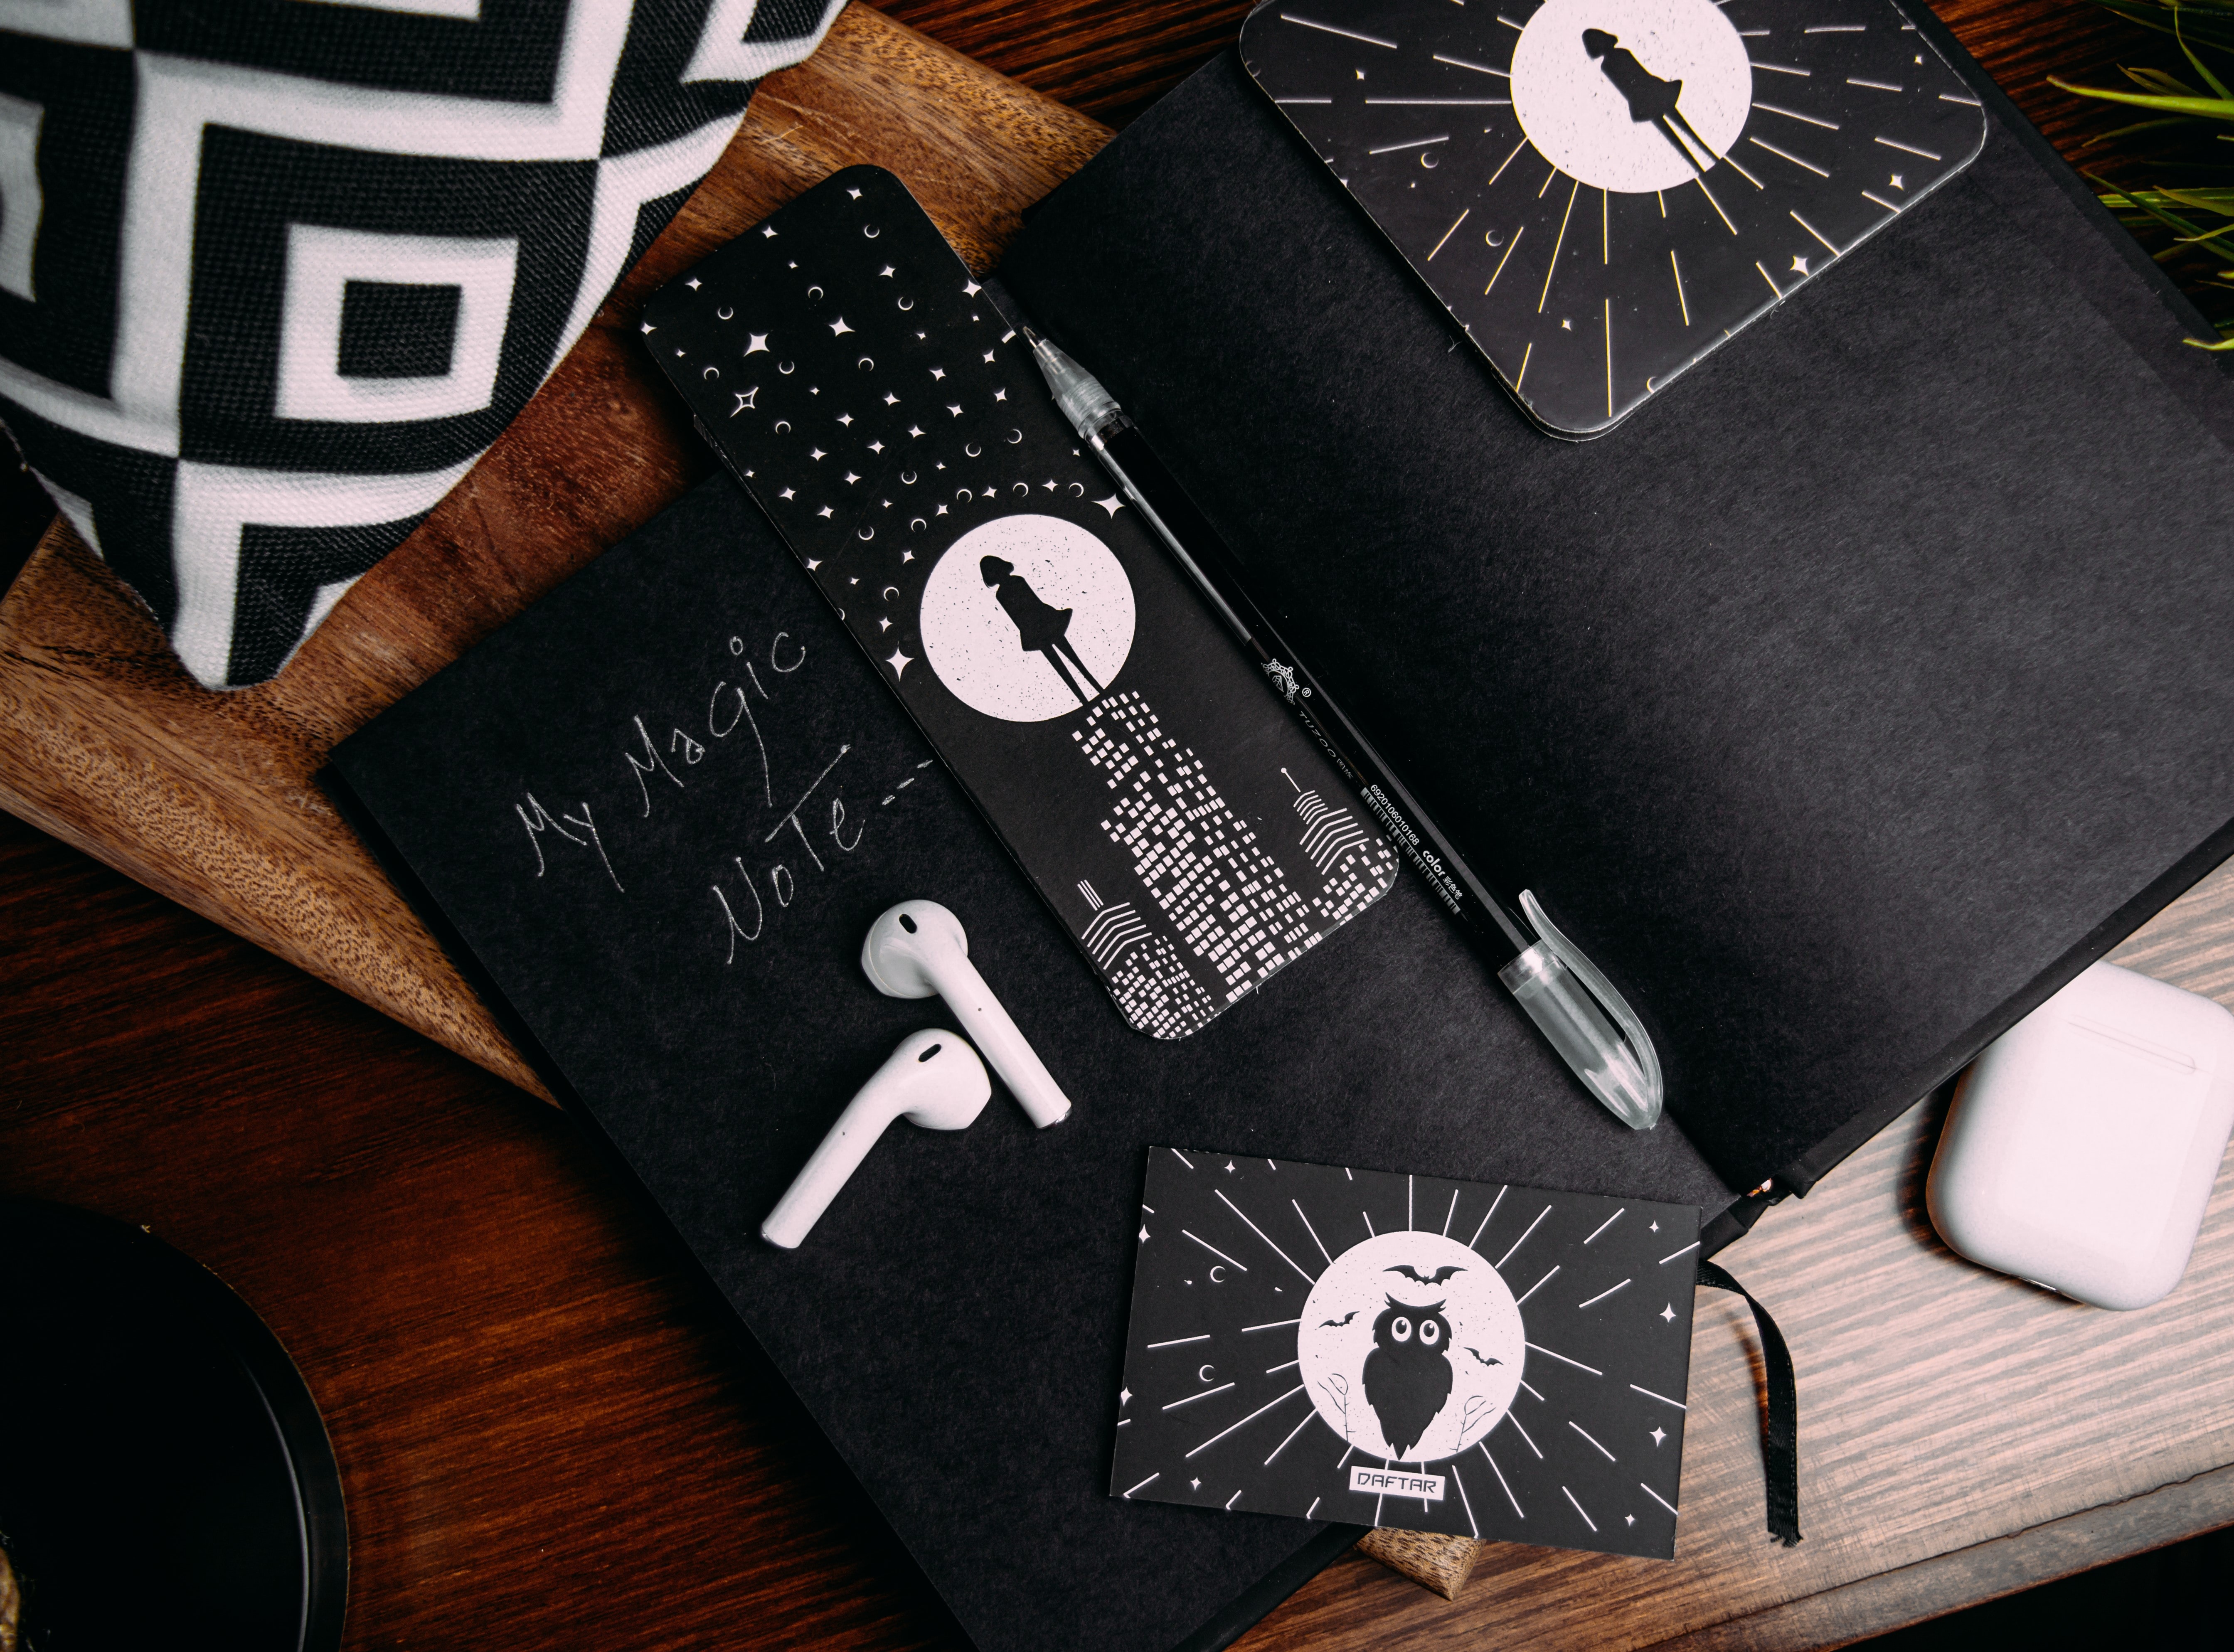 My Magic
Note---
® TUZOO
6920106010168 color 彩色笔
DAFTAR